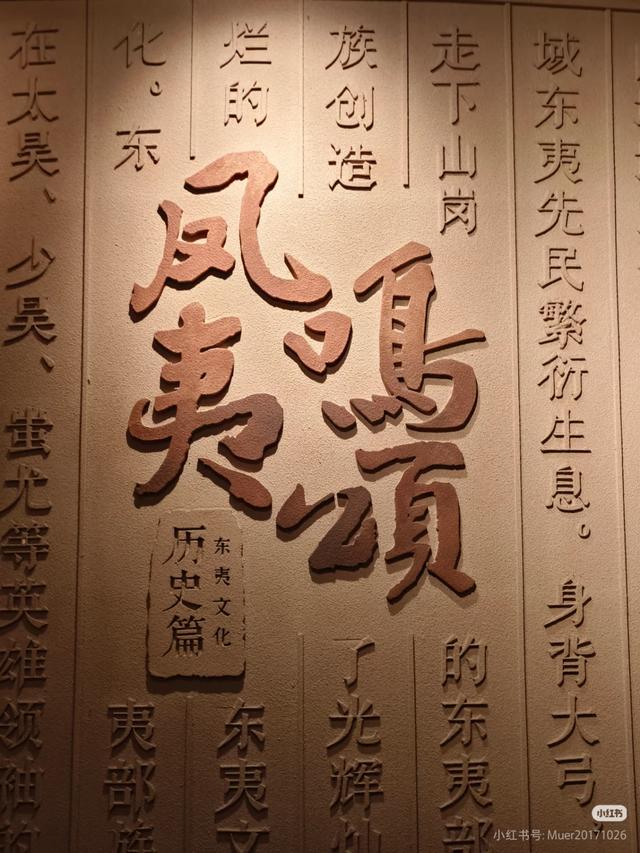 域东夷先民繁衍生息。身背大弓、
走下山岗的东夷部
族创造了光辉灿
烂的东夷文
化。东夷部族
在太昊、少昊、蚩尤等英雄领袖的
凤鳴
夷頌
东夷文化
历史篇
小红书
小红书号: Muer20171026